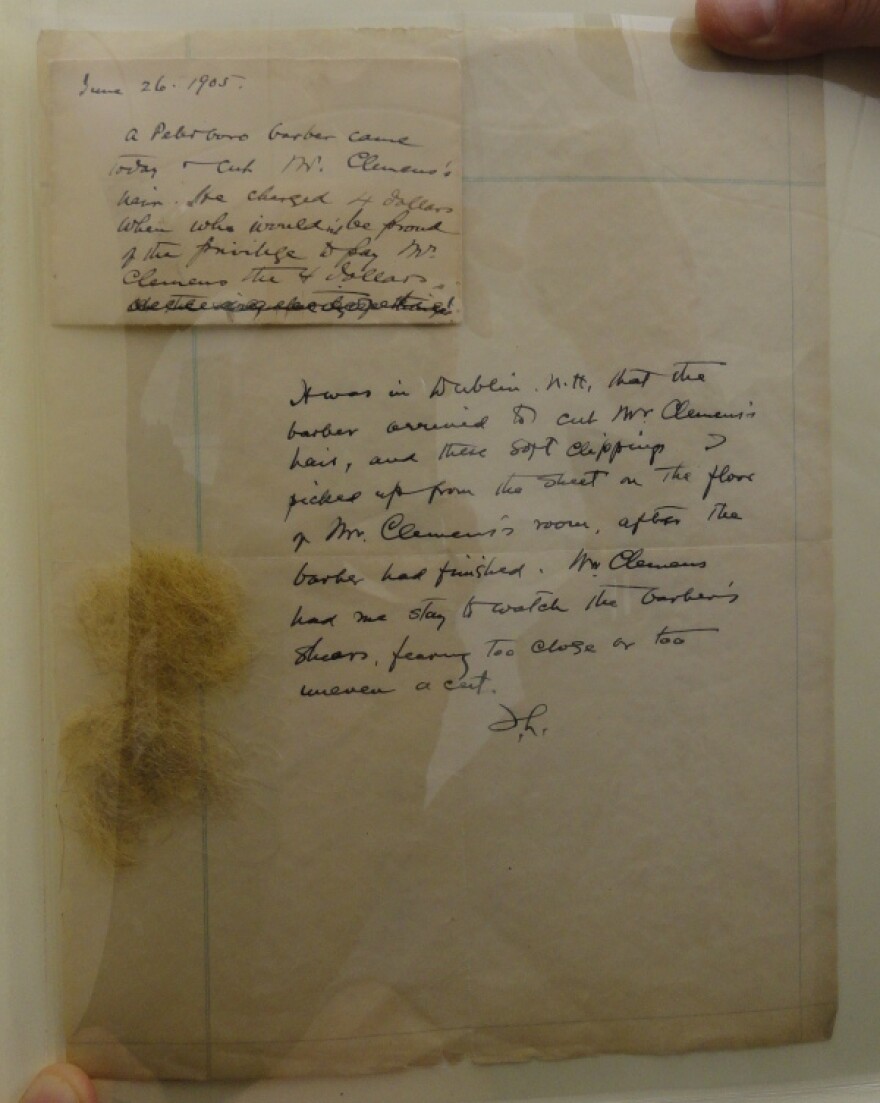 June 26. 1905.
A Peterboro barber came
today & cut Mr. Clemens's
hair. He charged 4 dollars
when who would be proud
of the privilege to pay Mr.
Clemens the 4 dollars.
It was in Dublin. N.H, that the
barber arrived to cut Mr. Clemens's
hair, and these soft clippings I
picked up from the sheet on the floor
of Mr. Clemens's room, after the
barber had finished. Mr Clemens
had me stay to watch the barber's
shears, fearing too close or too
uneven a cut.